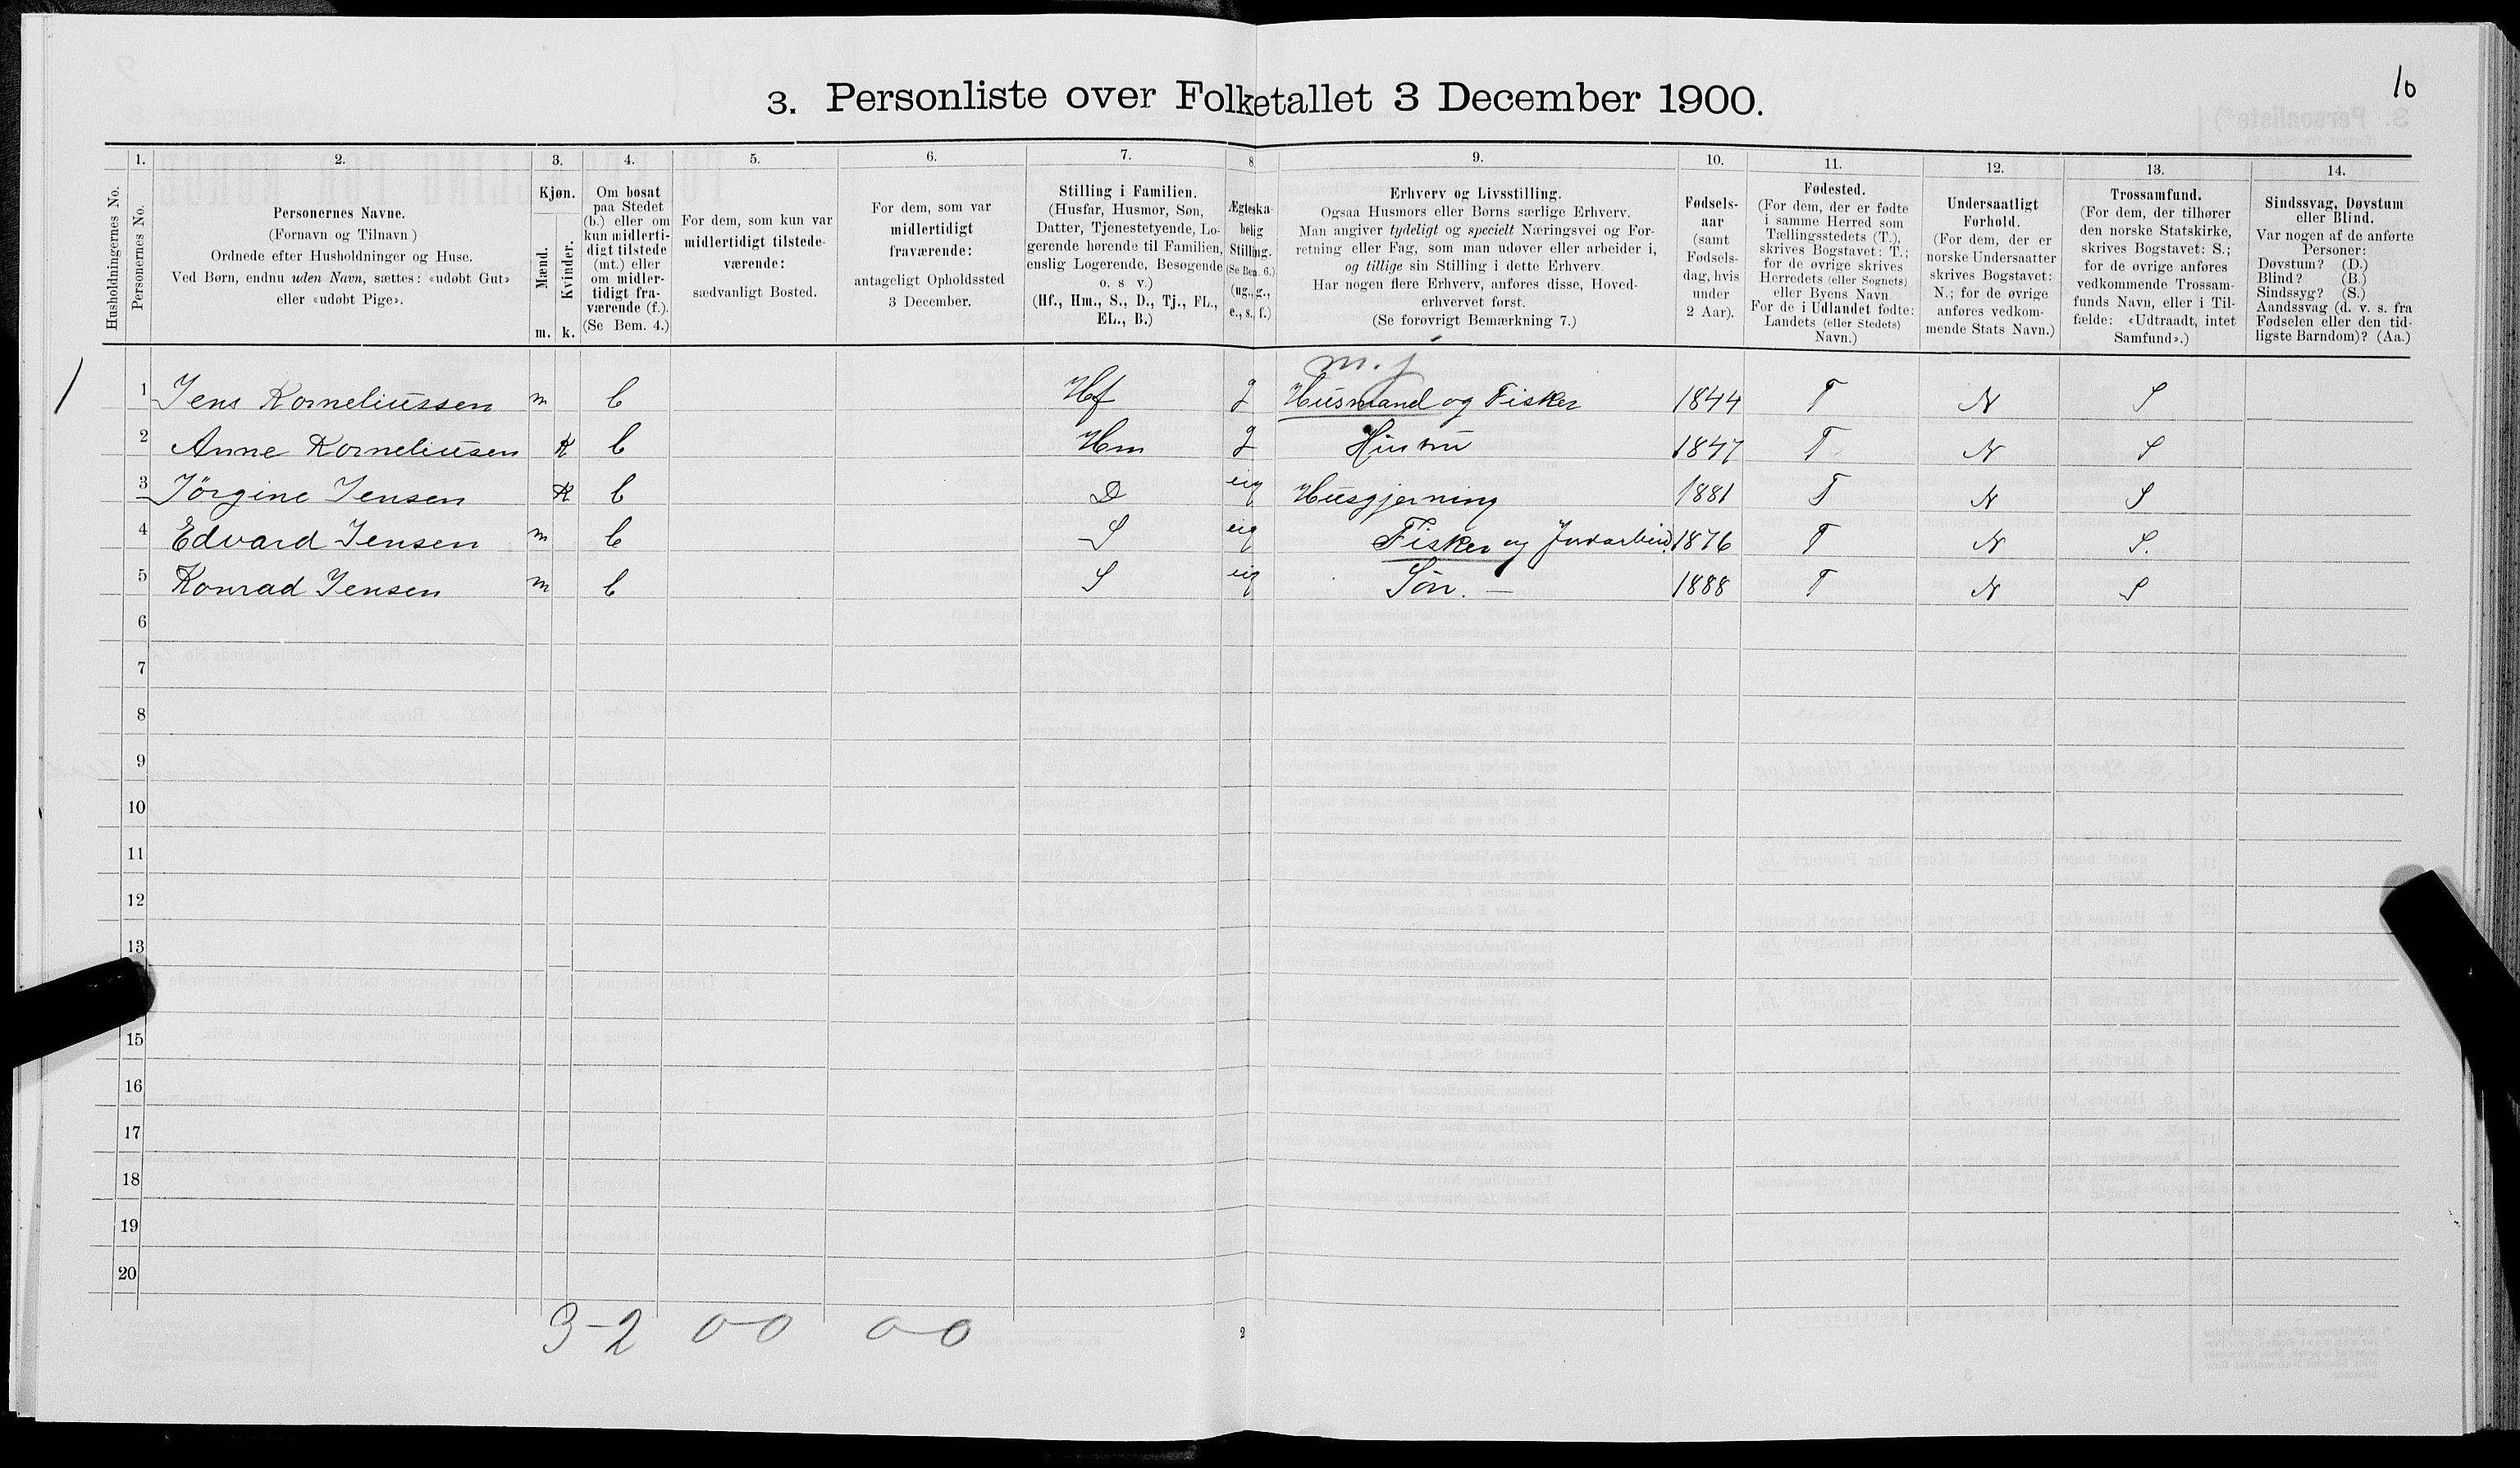 10
3. Personliste over Folketallet 3 December 1900.
1. 2. 3. 4. 5. 6. 7. 8. 9. 10. 11. 12. 13. 14.
Husholdningernes No.
Personernes No.
Personernes Navne.
(Fornavn og Tilnavn )
Ordnede efter Husholdninger og Huse.
Ved Børn, endnu uden Navn, sættes: «udøbt Gut»
eller «udøbt Pige».
Kjøn.
Mænd.
Kvinder.
m. k.
Om bosat
paa Stedet
(b.) eller om
kun midlerti-
digt tilstede
(mt.) eller
om midler-
tidigt fra-
værende (f.).
(Se Bem. 4.)
For dem, som kun var
midlertidigt tilstede-
værende:
sædvanligt Bosted.
For dem, som var
midlertidigt
fraværende:
antageligt Opholdssted
3 December.
Stilling i Familien.
(Husfar, Husmor, Søn,
Datter, Tjenestetyende, Lo-
gerende hørende til Familien,
enslig Logerende, Besøgende
o. s v.)
(Hf., Hm., S., D., Tj., FL.,
EL., B.)
Ægteska-
belig
Stilling.
(Se Bem. 6.)
(ug., g.,
e., s., f.)
Erhverv og Livsstilling.
Ogsaa Husmors eller Børns særlige Erhverv.
Man angiver tydeligt og specielt Næringsvei og For-
retning eller Fag, som man udøver eller arbeider i,
og tillige sin Stilling i dette Erhverv.
Har nogen flere Erhverv, anføres disse, Hoved-
erhvervet først.
(Se forøvrigt Bemærkning 7.)
Fødsels-
aar
(samt
Fødsels-
dag, hvis
under
2 Aar).
Fødested.
(For dem, der er fødte
i samme Herred som
Tællingsstedets (T.),
skrives Bogstavet: T.;
for de øvrige skrives
Herredets (eller Sognets)
eller Byens Navn
For de i Udlandet fødte:
Landets (eller Stedets)
Navn.)
Undersaatligt
Forhold.
(For dem, der er
norske Undersaatter
skrives Bogstavet:
N.; for de øvrige
anføres vedkom-
mende Stats Navn.)
Trossamfund.
(For dem, der tilhører
den norske Statskirke,
skrives Bogstavet: S.;
for de øvrige anføres
vedkommende Trossam-
funds Navn, eller i Til-
fælde: «Udtraadt, intet
Samfund».)
Sindssvag, Døvstum
eller Blind.
Var nogen af de anførte
Personer:
Døvstum? (D.)
Blind? (B.)
Sindssyg? (S.)
Aandssvag (d. v. s. fra
Fødselen eller den tid-
ligste Barndom)? (Aa.)
m. j
1 1 Jens Korneliussen m b Hf g Husmand og Fisker 1844 T N S
2 Anne Korneliusen K b Hm g Hustru 1847 T N S
3 Jörgine Jensen K b D eig Husgjerning 1881 T N S
4 Edvard Jensen m b S eig Fisker og Jordarbeid. 1876 T N S.
5 Konrad Jensen m b S eig Søn. – 1888 T N S
6
7
8
9
10
11
12
13
15
16
17
18
19
20
3-2 0-0 0-0
2